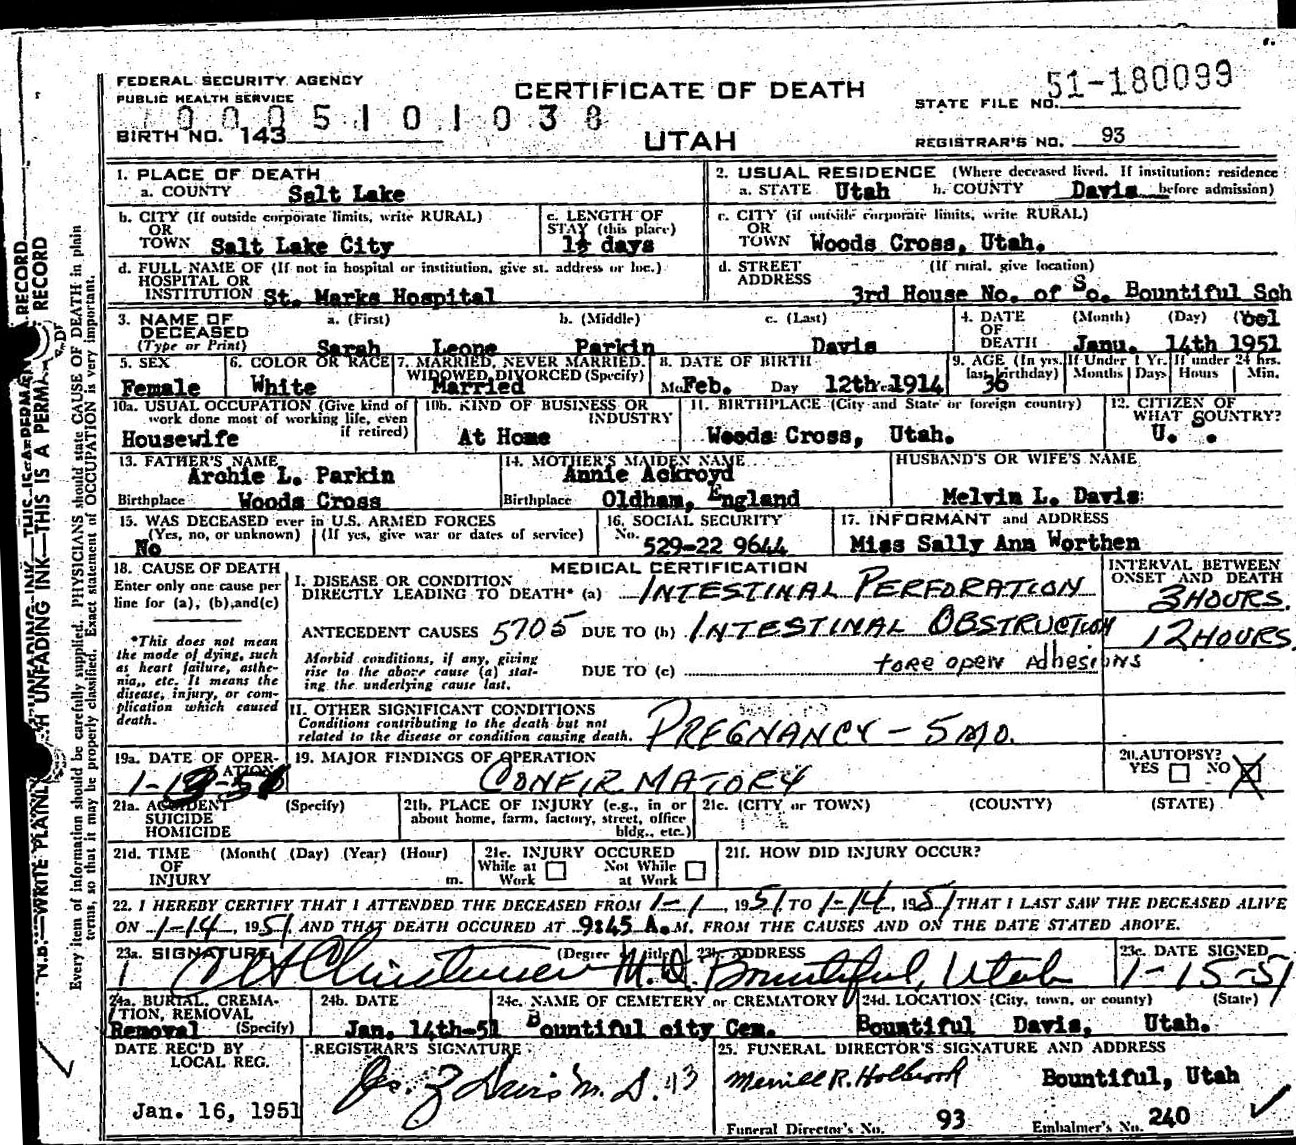 FEDERAL SECURITY AGENCY
PUBLIC HEALTH SERVICE
CERTIFICATE OF DEATH
STATE FILE NO. 51-180099
0005101038
BIRTH NO. 143
UTAH
REGISTRAR'S NO. 93
1. PLACE OF DEATH
a. COUNTY Salt Lake
2. USUAL RESIDENCE (Where deceased lived. If institution: residence before admission)
a. STATE Utah b. COUNTY Davis
b. CITY (If outside corporate limits, write RURAL)
OR
TOWN Salt Lake City
c. LENGTH OF
STAY (this place)
1½ days
c. CITY (if outside corporate limits, write RURAL)
OR
TOWN Woods Cross, Utah.
d. FULL NAME OF (If not in hospital or institution, give st. address or loc.)
HOSPITAL OR
INSTITUTION St. Marks Hospital
d. STREET (If rural, give location)
ADDRESS
3rd House No. of So. Bountiful Sch
3. NAME OF a. (First) b. (Middle) c. (Last)
DECEASED
(Type or Print) Sarah Leone Parkin Davis
4. DATE (Month) (Day)
OF
DEATH Janu. 14th 1951
5. SEX
Female
6. COLOR OR RACE
White
7. MARRIED, NEVER MARRIED,
WIDOWED, DIVORCED (Specify)
Married
8. DATE OF BIRTH
Mo Feb. Day 12th 1914
9. AGE (In yrs. last birthday) 36
If Under 1 Yr. Months Days
If under 24 hrs. Hours Min.
10a. USUAL OCCUPATION (Give kind of
work done most of working life, even
if retired)
Housewife
10b. KIND OF BUSINESS OR
INDUSTRY
At Home
11. BIRTHPLACE (City and State or foreign country)
Woods Cross, Utah.
12. CITIZEN OF
WHAT COUNTRY?
U. .
13. FATHER'S NAME
Archie L. Parkin
Birthplace Woods Cross
14. MOTHER'S MAIDEN NAME
Annie Ackroyd
Birthplace Oldham, England
HUSBAND'S OR WIFE'S NAME
Melvin L. Davis
15. WAS DECEASED ever in U.S. ARMED FORCES
(Yes, no, or unknown) (If yes, give war or dates of service)
No
16. SOCIAL SECURITY
No.
529-22 9644
17. INFORMANT and ADDRESS
Miss Sally Ann Worthen
18. CAUSE OF DEATH
Enter only one cause per
line for (a), (b), and (c)
*This does not mean
the mode of dying, such
as heart failure, asthe-
nia, etc. It means the
disease, injury, or com-
plication which caused
death.
MEDICAL CERTIFICATION
INTERVAL BETWEEN
ONSET AND DEATH
I. DISEASE OR CONDITION
DIRECTLY LEADING TO DEATH* (a) INTESTINAL PERFORATION
3 HOURS.
ANTECEDENT CAUSES 5705 DUE TO (b) INTESTINAL OBSTRUCTION
12 HOURS.
Morbid conditions, if any, giving
rise to the above cause (a) stat-
ing the underlying cause last.
DUE TO (c) tore open Adhesions
II. OTHER SIGNIFICANT CONDITIONS
Conditions contributing to the death but not
related to the disease or condition causing death.
PREGNANCY - 5 MO.
19a. DATE OF OPER-
ATION
19. MAJOR FINDINGS OF OPERATION
CONFIRMATORY
20. AUTOPSY?
YES NO X
21a. ACCIDENT (Specify)
SUICIDE
HOMICIDE
21b. PLACE OF INJURY (e.g., in or
about home, farm, factory, street, office
bldg., etc.)
21c. (CITY or TOWN) (COUNTY) (STATE)
21d. TIME (Month( (Day) (Year) (Hour)
OF
INJURY m.
21e. INJURY OCCURED
While at Work Not While at Work
21f. HOW DID INJURY OCCUR?
22. I HEREBY CERTIFY THAT I ATTENDED THE DECEASED FROM 1-1, 1951 TO 1-14, 1951 THAT I LAST SAW THE DECEASED ALIVE
ON 1-14, 1951 AND THAT DEATH OCCURED AT 9:45 A.M. FROM THE CAUSES AND ON THE DATE STATED ABOVE.
23a. SIGNATURE (Degree title)
Christensen M.D.
23b. ADDRESS
Bountiful, Utah
23c. DATE SIGNED
1-15-51
24a. BURIAL, CREMA-
TION, REMOVAL
Removal (Specify)
24b. DATE
Jan. 14th-51
24c. NAME OF CEMETERY or CREMATORY
Bountiful city Cem.
24d. LOCATION (City, town, or county) (State)
Bountiful Davis, Utah.
DATE REC'D BY
LOCAL REG.
Jan. 16, 1951
REGISTRAR'S SIGNATURE
25. FUNERAL DIRECTOR'S SIGNATURE AND ADDRESS
Merrill R. Holbrook Bountiful, Utah
Funeral Director's No. 93 Embalmer's No. 240
N.B.—WRITE PLAINLY WITH UNFADING INK—THIS IS A PERMANENT RECORD
Every item of information should be carefully supplied. PHYSICIANS should state CAUSE OF DEATH in plain
terms, so that it may be properly classified. Exact statement of OCCUPATION is very important.